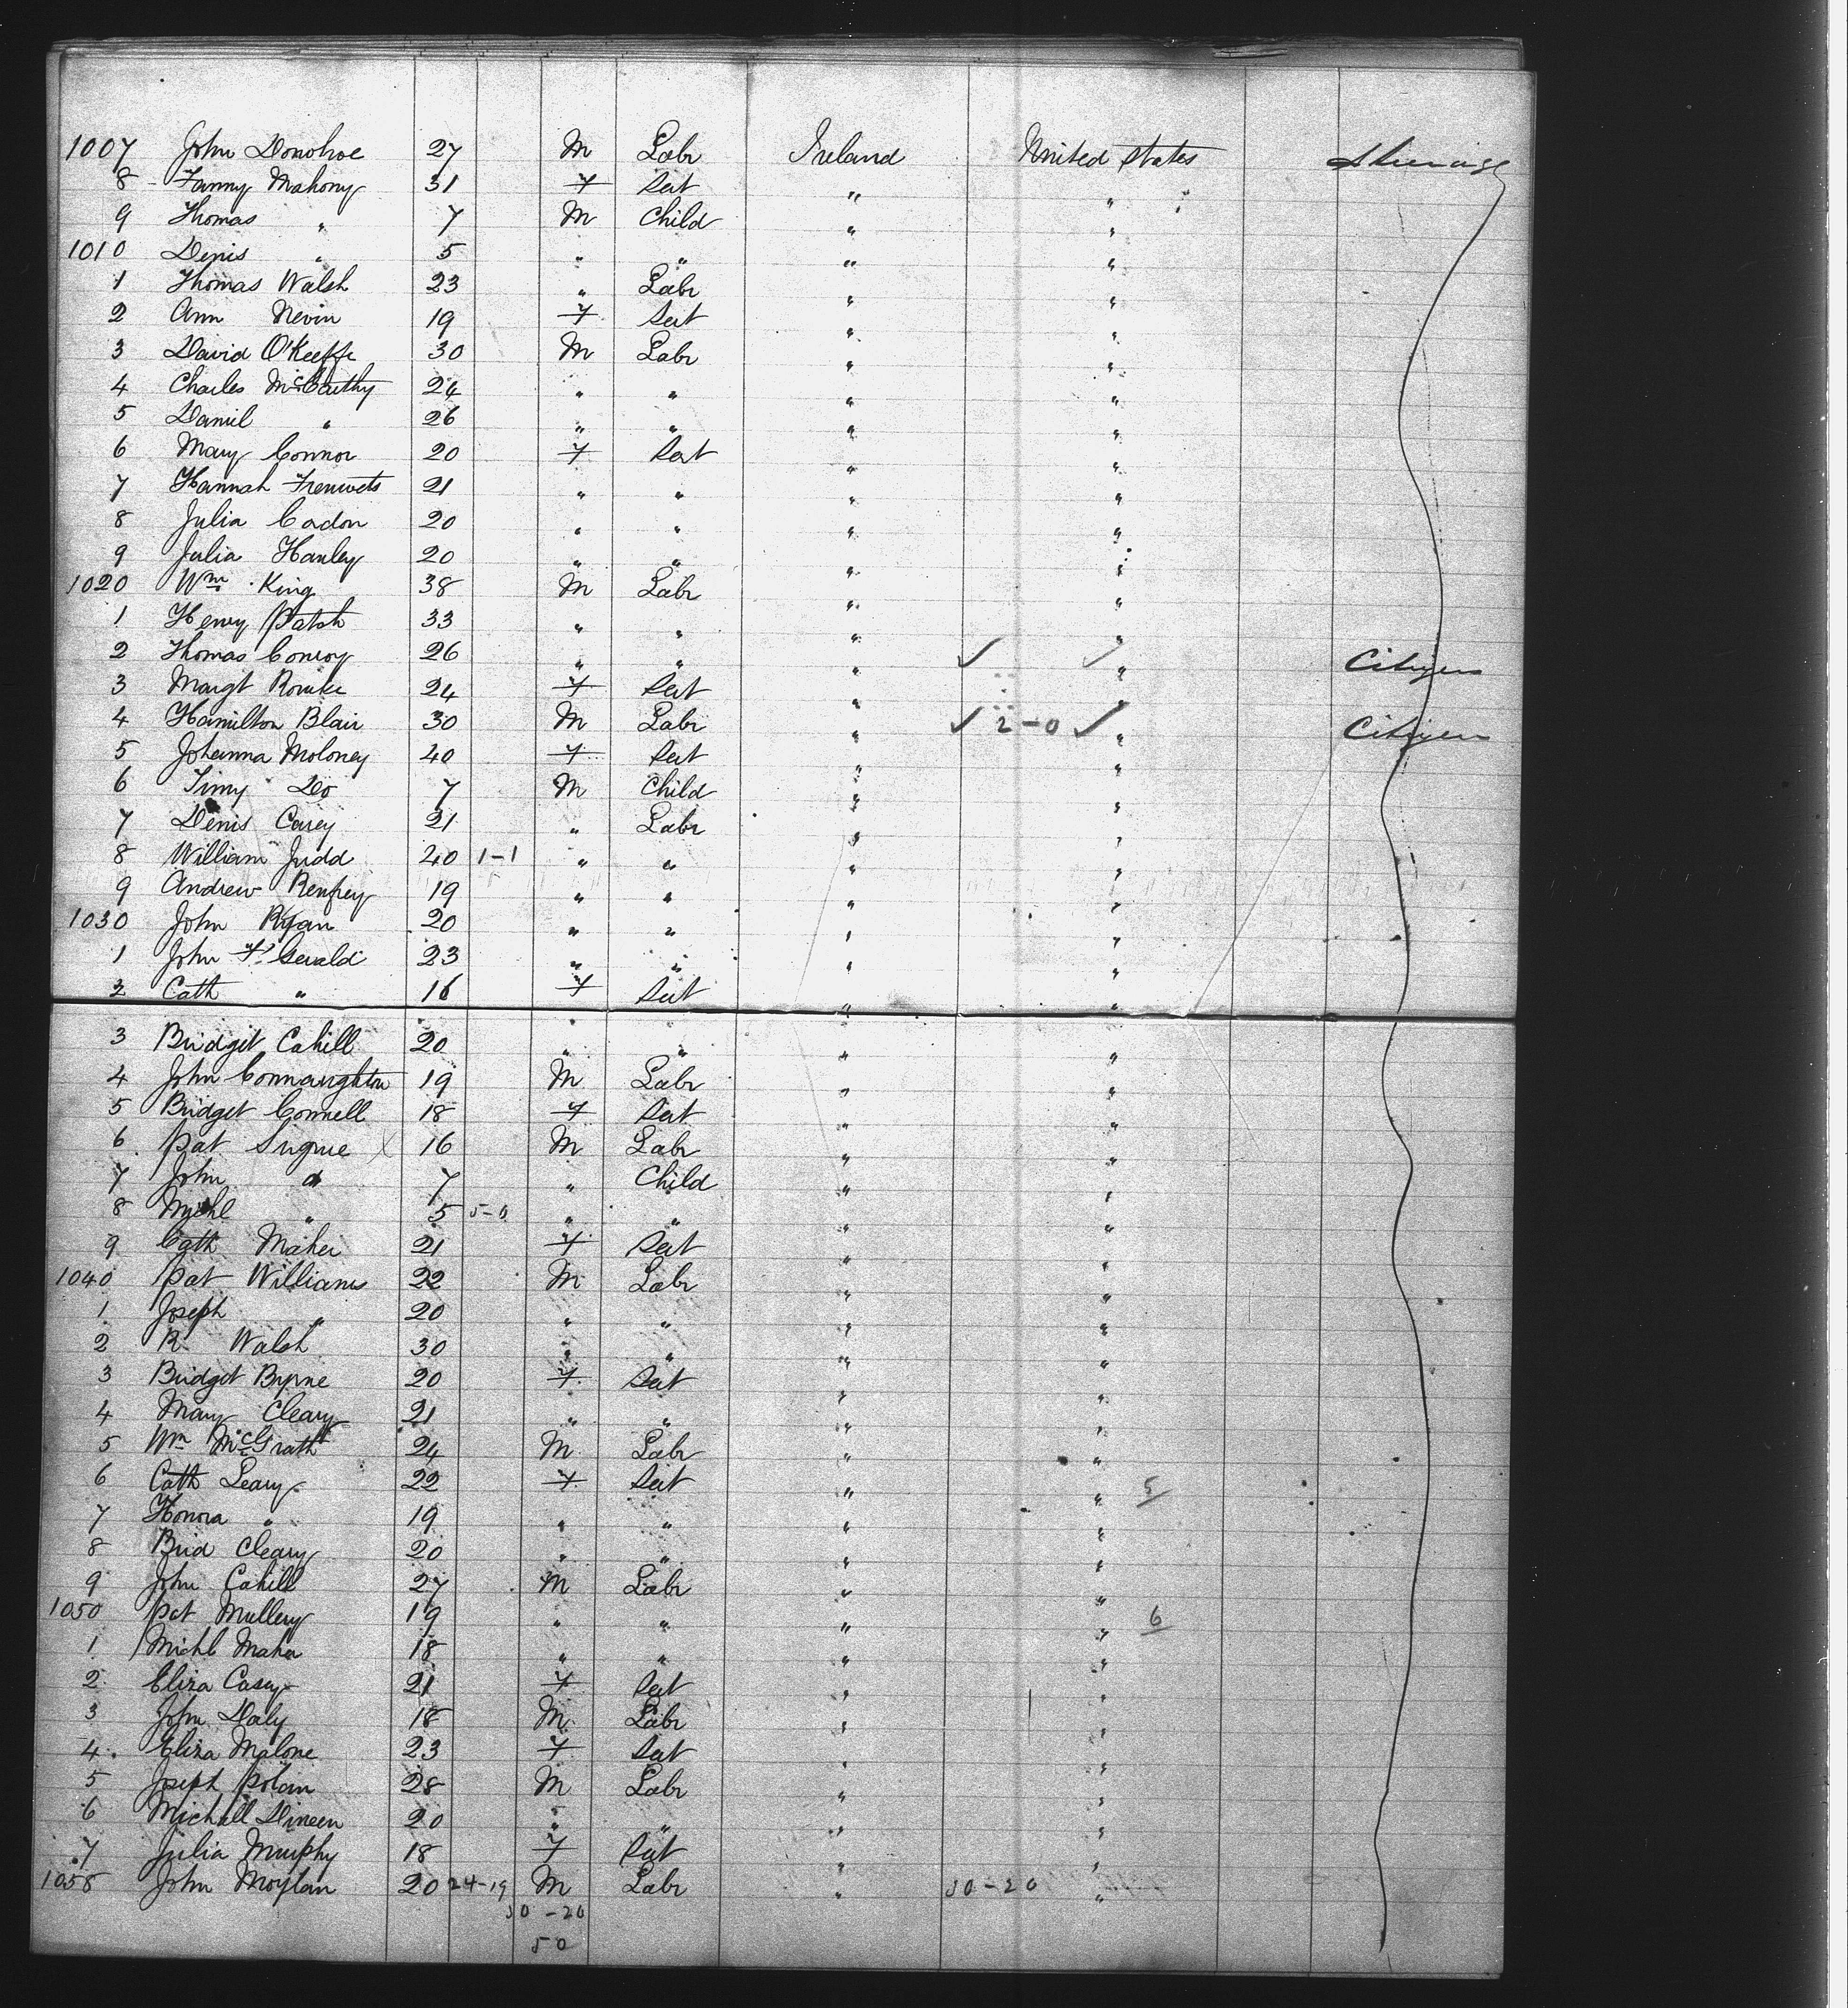 1007 John Donohoe 27 M Labr Ireland United States Steerage
8 Fanny Mahony 31 F Sert " "
9 Thomas " 7 M Child " "
1010 Denis " 5 " " " "
1 Thomas Walsh 23 " Labr " "
2 Ann Nevin 19 F Sert " "
3 David O'Keeffe 30 M Labr " "
4 Charles McCarthy 24 " " " "
5 Daniel " 26 " " " "
6 Mary Connor 20 F Sert " "
7 Hannah 21 " " " "
8 Julia Cadon 20 " " " "
9 Julia Hanley 20 " " " "
1020 Wm King 38 M Labr " "
1 Henry Patch 33 " " " "
2 Thomas Conroy 26 " " " ✓ ✓ " Citizen
3 Margt Rourke 24 F Sert " "
4 Hamilton Blair 30 M Labr " ✓ 2-0 ✓ " Citizen
5 Johanna Moloney 40 F Sert " "
6 Timy Do 7 M Child " "
7 Denis Carey 21 " Labr " "
8 William Judd 40 1-1 " " " "
9 Andrew Renfrey 19 " " " "
1030 John Ryan 20 " " " "
1 John F'Gerald 23 " " " "
2 Cath " 16 F Sert " "
3 Bridget Cahill 20 " " " "
4 John Connaughton 19 M Labr " "
5 Bridget Connell 18 F Sert " "
6 Pat Sugrue X 16 M Labr " "
7 John " 7 " Child " "
8 Michl " 5 5-0 " " " "
9 Cath Maher 21 F Sert " "
1040 Pat Williams 22 M Labr " "
1 Joseph " 20 " " " "
2 R Walsh 30 " " " "
3 Bridget Byrne 20 F Sert " "
4 Mary Cleary 21 " " " "
5 Wm McGrath 24 M Labr " "
6 Cath Leary 22 F Sert " " 5
7 Honora " 19 " " " "
8 Brid Cleary 20 " " " "
9 John Cahill 27 M Labr " "
1050 Pat Mullery 19 " " " " 6
1 Michl Maher 18 " " " "
2 Eliza Casey 21 F Sert " "
3 John Daly 18 M Labr " "
4 Eliza Malone 23 F Sert " "
5 Joseph Polain 28 M Labr " "
6 Michall Dineen 20 " " " "
7 Julia Murphy 18 F Sert " "
1058 John Moylan 20 24-19 M Labr " 30-20 "
30-20
50